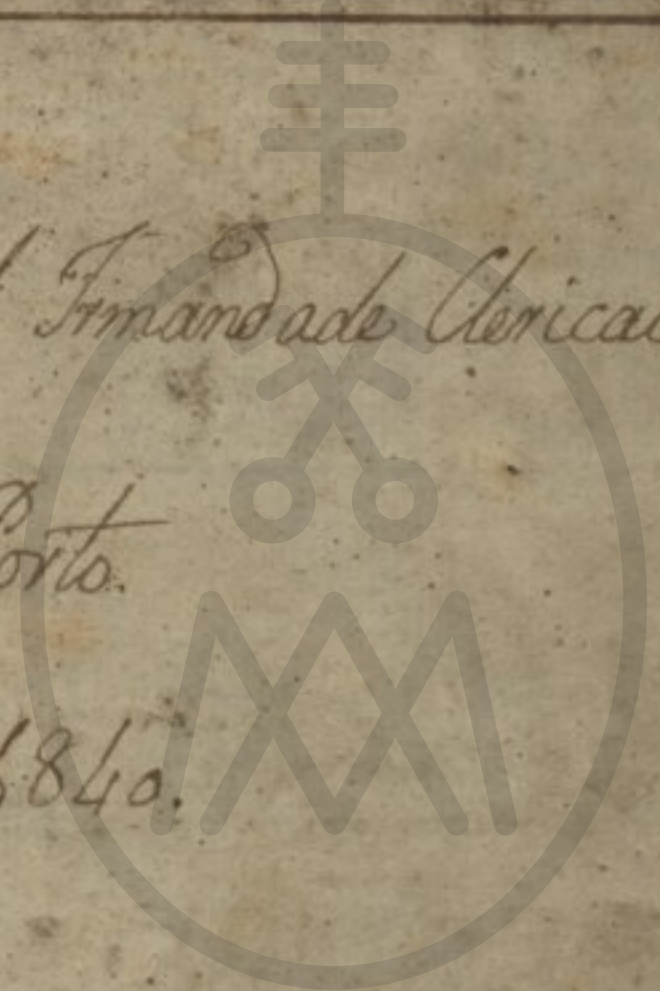 Irmandade Clerical
Porto.
1840.